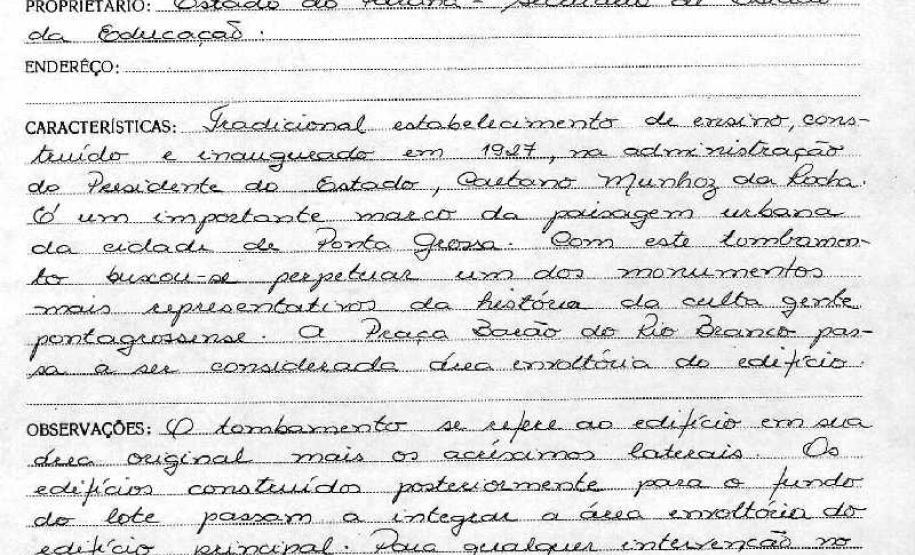 PROPRIETÁRIO: Estado do Paraná - Secretaria de Estado
da Educação.
ENDERÊÇO:
CARACTERÍSTICAS: Tradicional estabelecimento de ensino, cons-
truído e inaugurado em 1927, na administração
do Presidente do Estado, Caetano Munhoz da Rocha.
É um importante marco da paisagem urbana
da cidade de Ponta Grossa. Com este tombamen-
to buscou-se perpetuar um dos monumentos
mais representativos da história da culta gente
pontagrossense. A Praça Barão do Rio Branco pas-
sa a ser considerada área envoltória do edifício.
OBSERVAÇÕES: O tombamento se refere ao edifício em sua
área original mais os acréscimos laterais. Os
edifícios construídos posteriormente para o fundo
do lote passam a integrar a área envoltória do
edifício principal. Para qualquer intervenção no